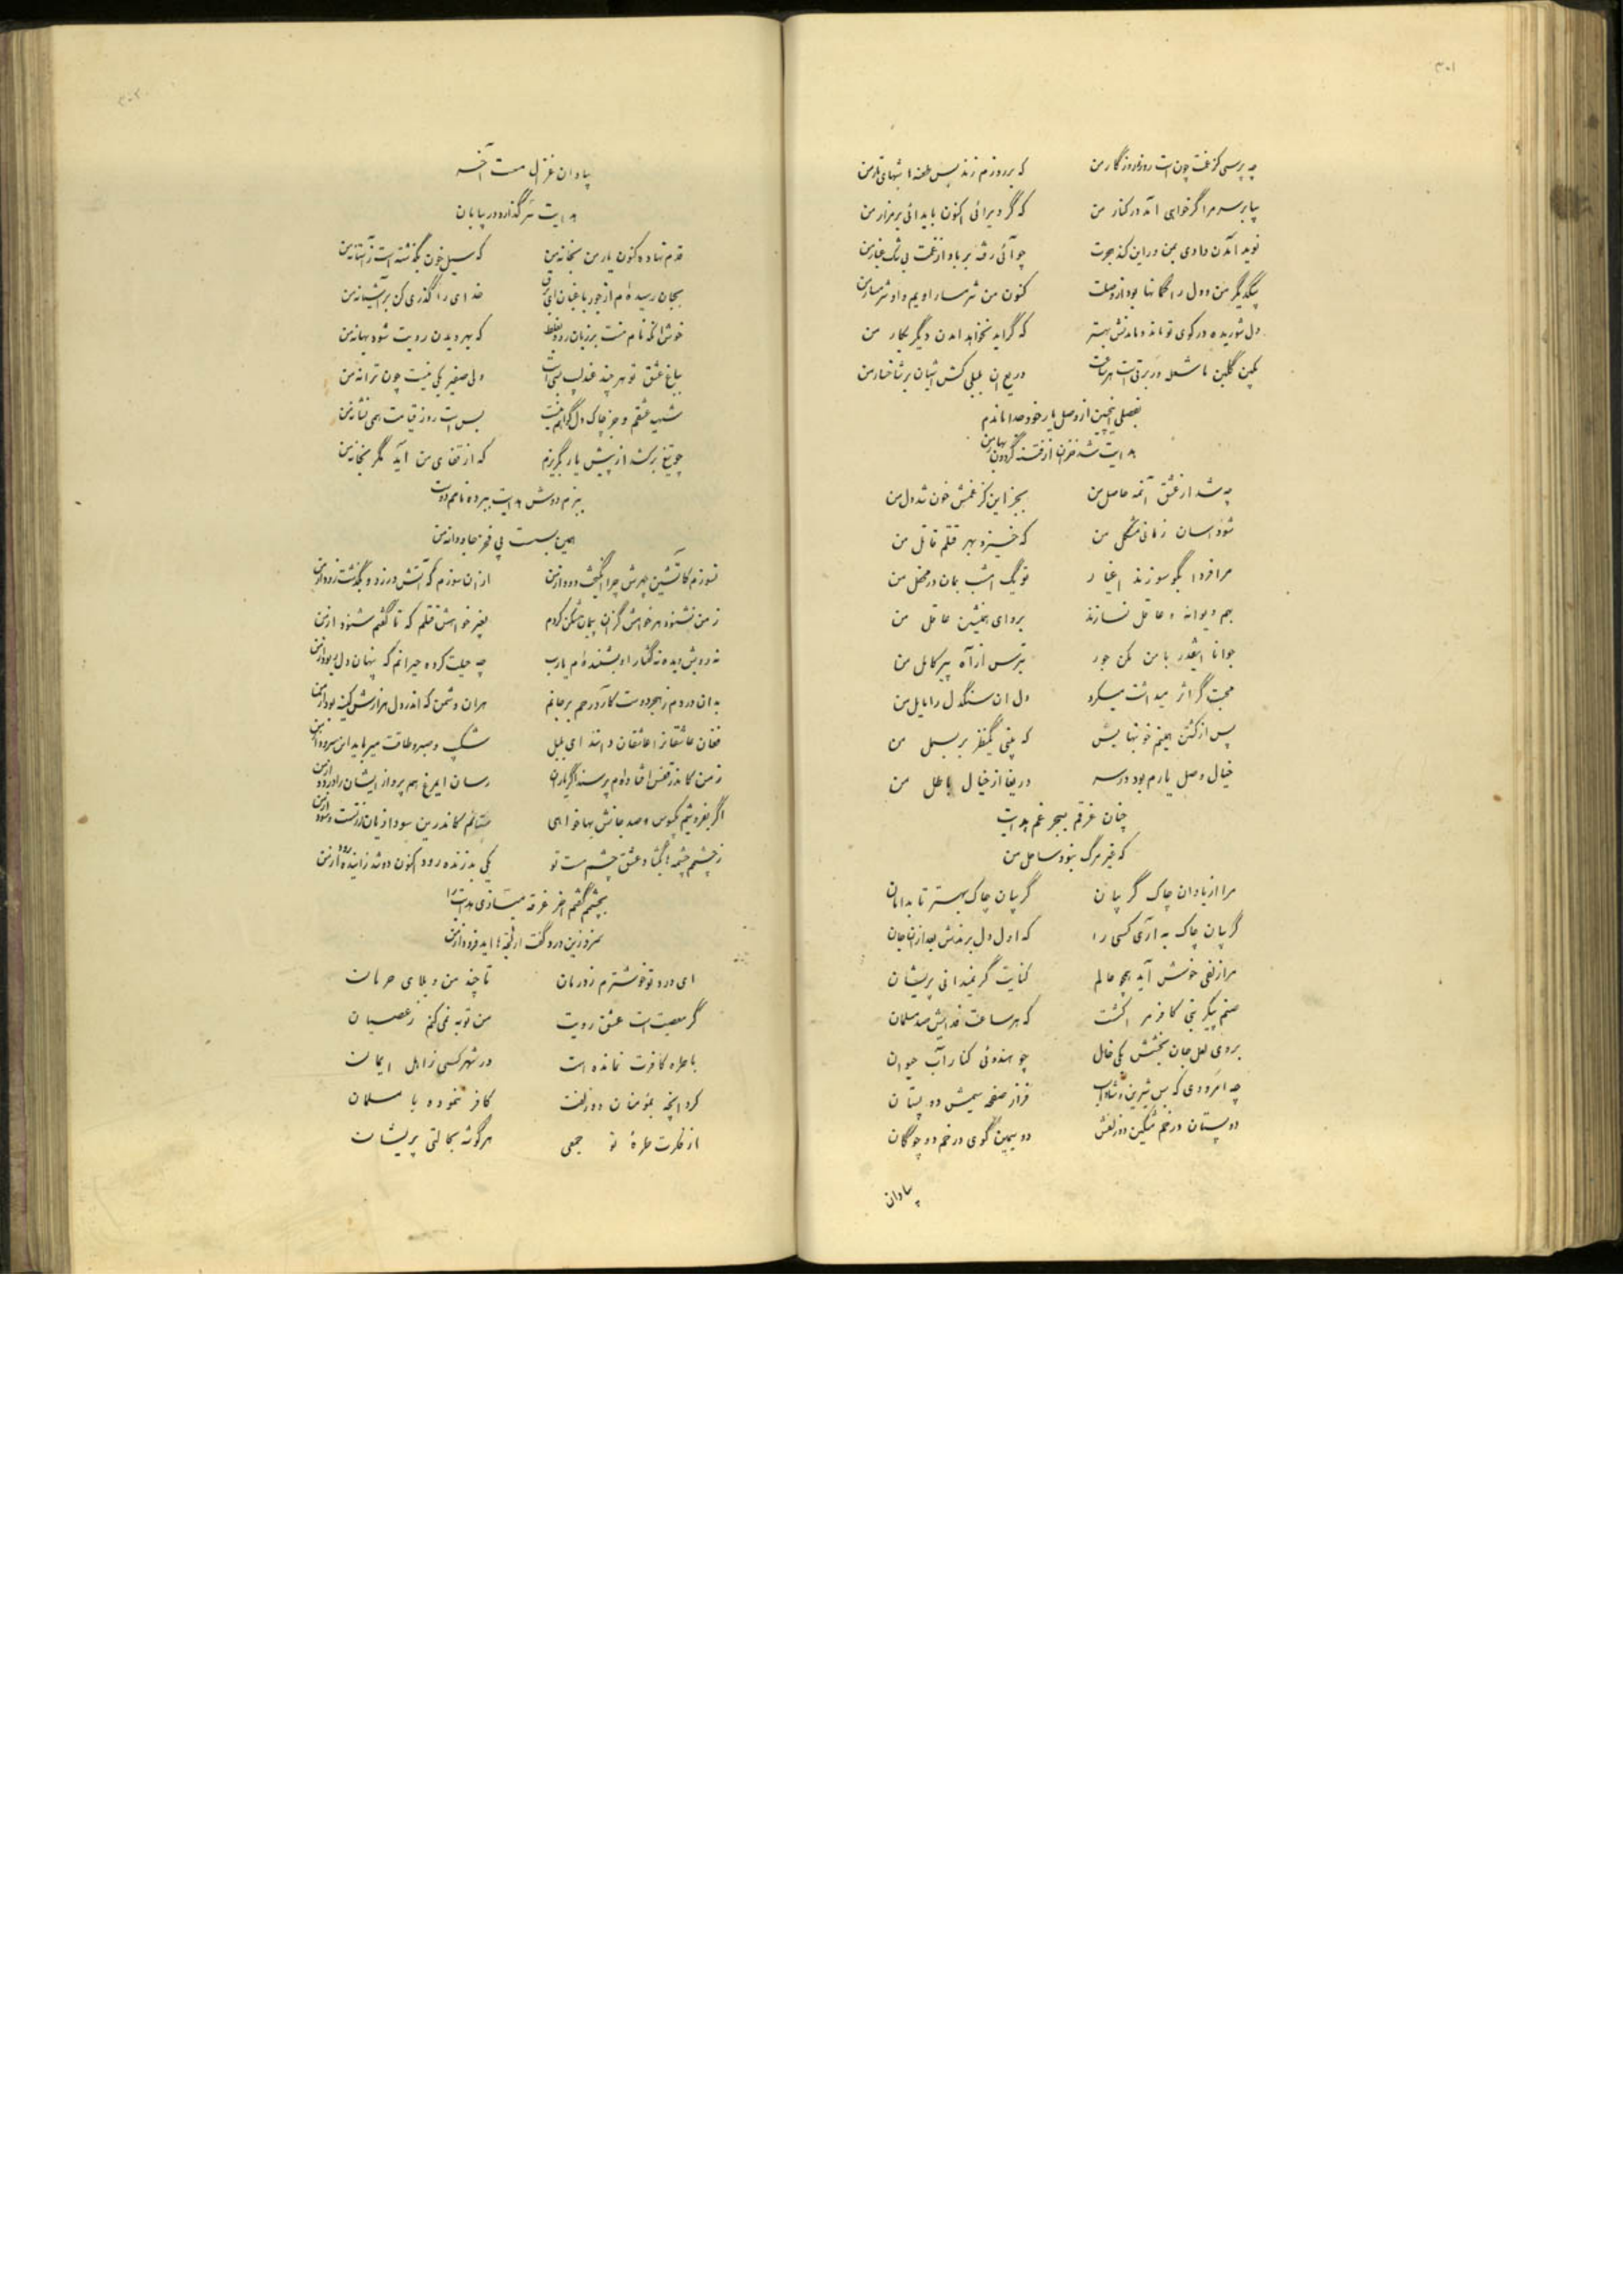 ۳۰۱
چه پرسی کز غمت چون است روز و روزگار من که بر روزم زند پس طعنه‌ها شبهای تار من
بیا بر سر مرا گر خواهی آمد در کنار من که گر دیر آئی اکنون باید آئی بر مزار من
نوید آمدن دادی بمن در این کند هجرت چو آئی رفته بر باد از غمت بی شک غبار من
بیکدیگر من و دل را گمانها بود از وصلت کنون من شرمسار اویم و او شرمسار من
دل شوریده در کوی تو ماند و ماندنش بهتر که گر آید نخواهد آمدن دیگر بکار من
بفصلی اینچنین از وصل یار خود جدا ماندم
هدایت شد خزان از فتنه گردون بهار من
چه شد از عشق آنمه حاصل من بجز این کز غمش خون شد دل من
شود آسان زمانی مشکل من که خیزد بهر قتلم قاتل من
مرا فردا بگو سوزند اغیار تو یک امشب بمان در محفل من
بهم دیوانه و عاقل نسازند برو ای همنشین عاقل من
جوانا اینقدر با من مکن جور بترس از آه پیر کامل من
محبت گر اثر میداشت میکرد دل آن سنگدل را مایل من
پس از کشتن همینم خونبها بس که بینی یکنظر بر بسمل من
خیال وصل یارم بود در سر دریغا از خیال باطل من
چنان غرقم ببحر غم هدایت
که غیر مرگ نبود ساحل من
مرا از بادان چاک گریبان گریبان چاک بهتر تا بدامان
گریبان چاک به آری کسی را که اول دل برندش بعد از آن جان
مرا زلفی خوش آید همچو عالم کنایت گر نمیدانی پریشان
صنم پیکر بتی کافر مرا کشت که هر ساعت فدایش صد مسلمان
بروی لعل جان بخشش یکی خال چو هندوئی کنار آب حیوان
چه امرودی که بس شیرین و شاداب فراز صفحه سیمش دو پستان
دو پستان در خم مشکین دو زلفش دو سیمین گوی در خم دو چوگان
بیاد آن
۳۰۲
بیاد آن غزال مست آخر
هدایت سر گذارد در بیابان
قدم نهاده کنون یار من بخانه من که سیل خون بگذشته است ز آستانه من
بجان رسیده‌ام از جور باغبان ای برق خدای را گذری کن بر آشیانه من
خوش آنکه نام منت بر زبان رود بغلط که بهر دیدن رویت شود بهانه من
بباغ عشق تو هر چند عندلیب بسی است ولی صفیر یکی نیست چون ترانه من
شهید عشقم و جز چاک دل گواهم نیست بس است روز قیامت همی نشانه من
چو تیغ برکشد از پیش یار نگریزم که از قفای من آید مگر بخانه من
ببزم دوش هدایت ببرده نامم دوست
همین بس است پی فخر جاودانه من
نسوزم کاتشین چهرش چرا انگیخت دود از من از آن سوزم که آتش در زد و بگذشت زود از من
ز من نشنود هر خواهش گز آن پیمان‌شکن کردم بغیر خواهش قتلم که تا گفتم شنود از من
نه رویش دیده نه گفتار او بشنیده‌ام یارب چه حیلت کرده حیرانم که پنهان دل ربود از من
فغان عاشقانرا عاشقان دانند ای بلبل
ز من کاندر قفس افتاده‌ام پرسند اگر یاران رسان ای مرغ هم پرواز ایشان را درود از من
اگر بفروشیم یکبوس و صد جانش بها خواهی ستانم کاندرین سودا زیان از تست و سود از من
ز چشمم چشمه‌ها بگشاد عشق چشم مست تو یکی بد زنده رود اکنون دو شد زاینده رود از من
بچشمم گفتم آخر غرقه میسازی هدایت را
ای درد تو خوشترم ز درمان تا چند من و بلای حرمان
گر معصیت است عشق رویت من توبه نمی‌کنم ز عصیان
با طره کافرت نمانده است در شهر کسی ز اهل ایمان
کرد آنچه بمؤمنان دو زلفت کافر ننموده با مسلمان
از فکرت طرهٔ تو جمعی هر گوشه بحالتی پریشان